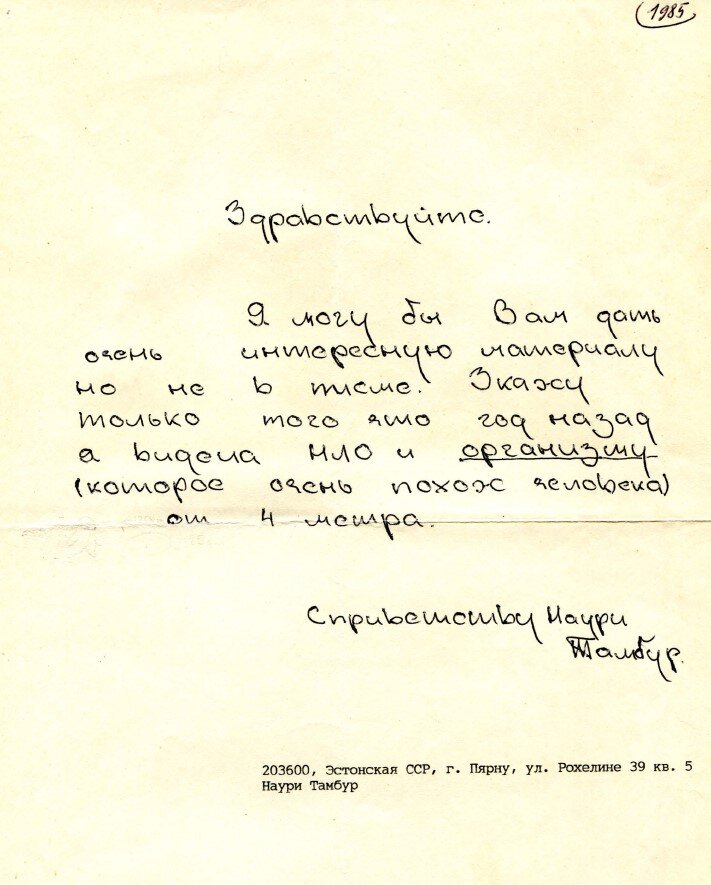 1985
Здравствуйте.
Я могу бы Вам дать
очень интересную материалу
но не в писме. Зкажу
только того что год назад
а видела НЛО и организму
(которое очень похож человека)
от 4 метра.
Сприветству Наури
Тамбур.
203600, Эстонская ССР, г. Пярну, ул. Рохелине 39 кв. 5
Наури Тамбур